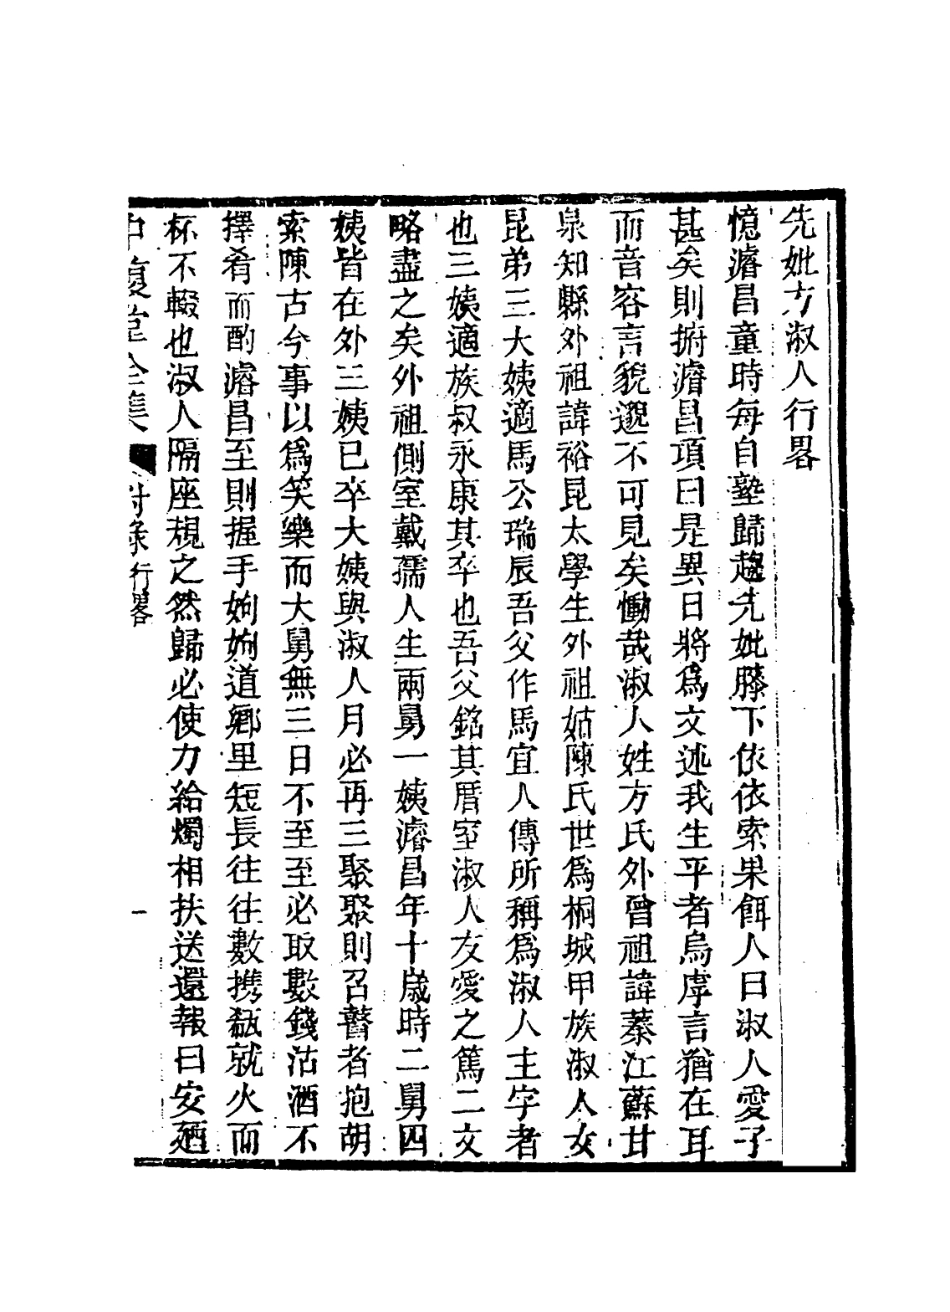 先妣方淑人行畧
憶濬昌童時每自塾歸趨先妣膝下依依索果餌人曰淑人愛子
甚矣則捬濬昌項曰是異日將爲文述我生平者烏虖言猶在耳
而音容言貌邈不可見矣慟哉淑人姓方氏外曾祖諱蓁江蘇甘
泉知縣外祖諱裕昆太學生外祖姑陳氏世爲桐城甲族淑人女
昆弟三大姨適馬公瑞辰吾父作馬宜人傳所稱爲淑人主字者
也三姨適族叔永康其卒也吾父銘其厝室淑人友愛之篤二文
略盡之矣外祖側室戴孺人生兩舅一姨濬昌年十歲時二舅四
姨皆在外三姨已卒大姨與淑人月必再三聚聚則召瞽者抱胡
索陳古今事以爲笑樂而大舅無三日不至至必取數錢沽酒不
擇肴而酌濬昌至則握手姁姁道鄉里短長往往數携瓻就火而
杯不輟也淑人隔座規之然歸必使力給燭相扶送還報曰安廼
中復堂全集 附錄行畧 一